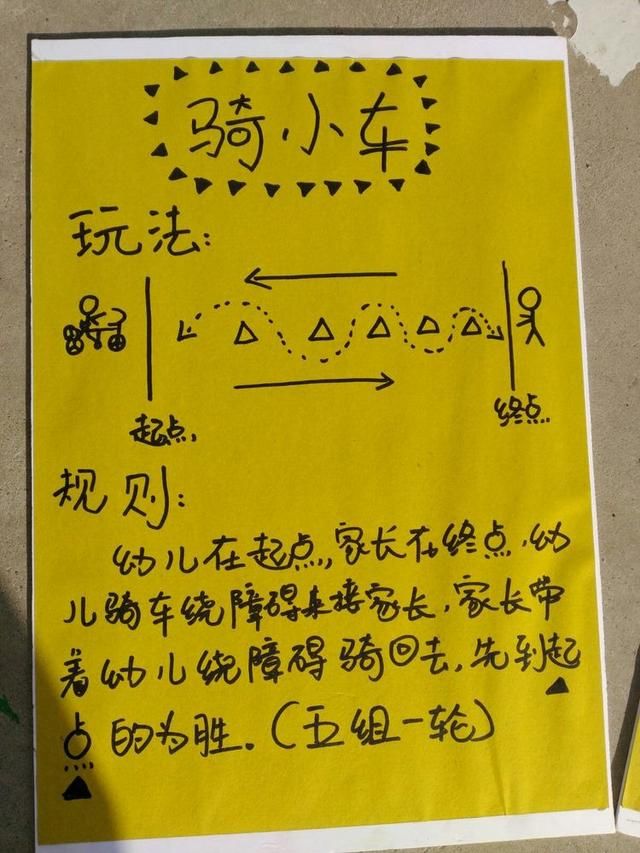 骑小车
玩法:
起点
终点
规则:
幼儿在起点,家长在终点,幼
儿骑车绕障碍来接家长,家长带
着幼儿绕障碍骑回去,先到起
点的为胜。(五组一轮)